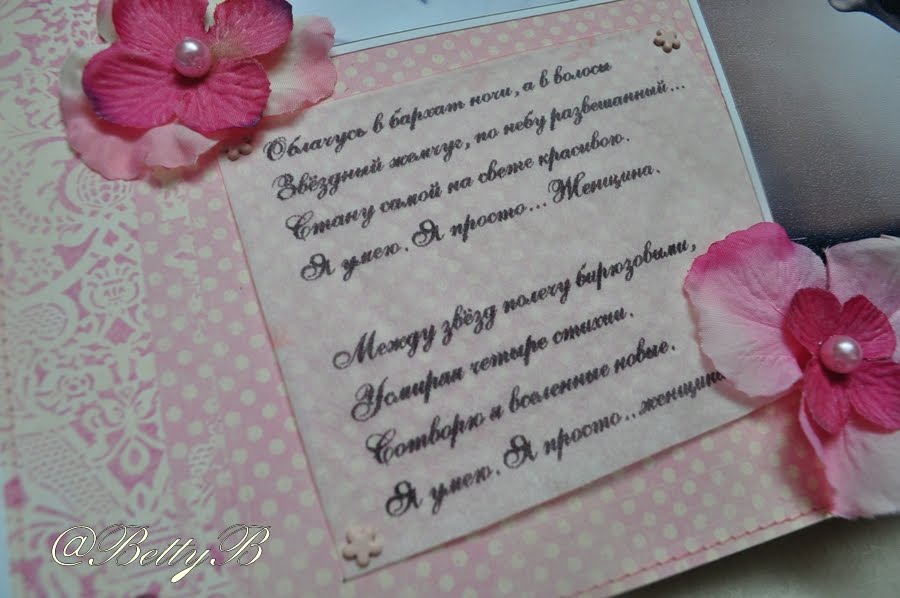 Облачусь в бархат ночи, а в волосы
Звёздный жемчуг, по небу развешанный...
Стану самой на свете красивою.
Я умею. Я просто...Женщина.
Между звёзд полечу бирюзовыми,
Усмиряя четыре стихии.
Сотворю я вселенные новые.
Я умею. Я просто...женщина
@BettyB